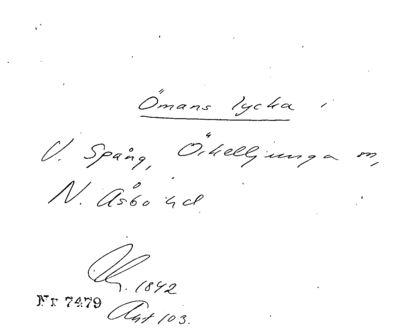 Ömans lycka i
V. Spång, Örkelljunga sn,
N. Åsbo hd
1842
Nr 7479
Akt 103.